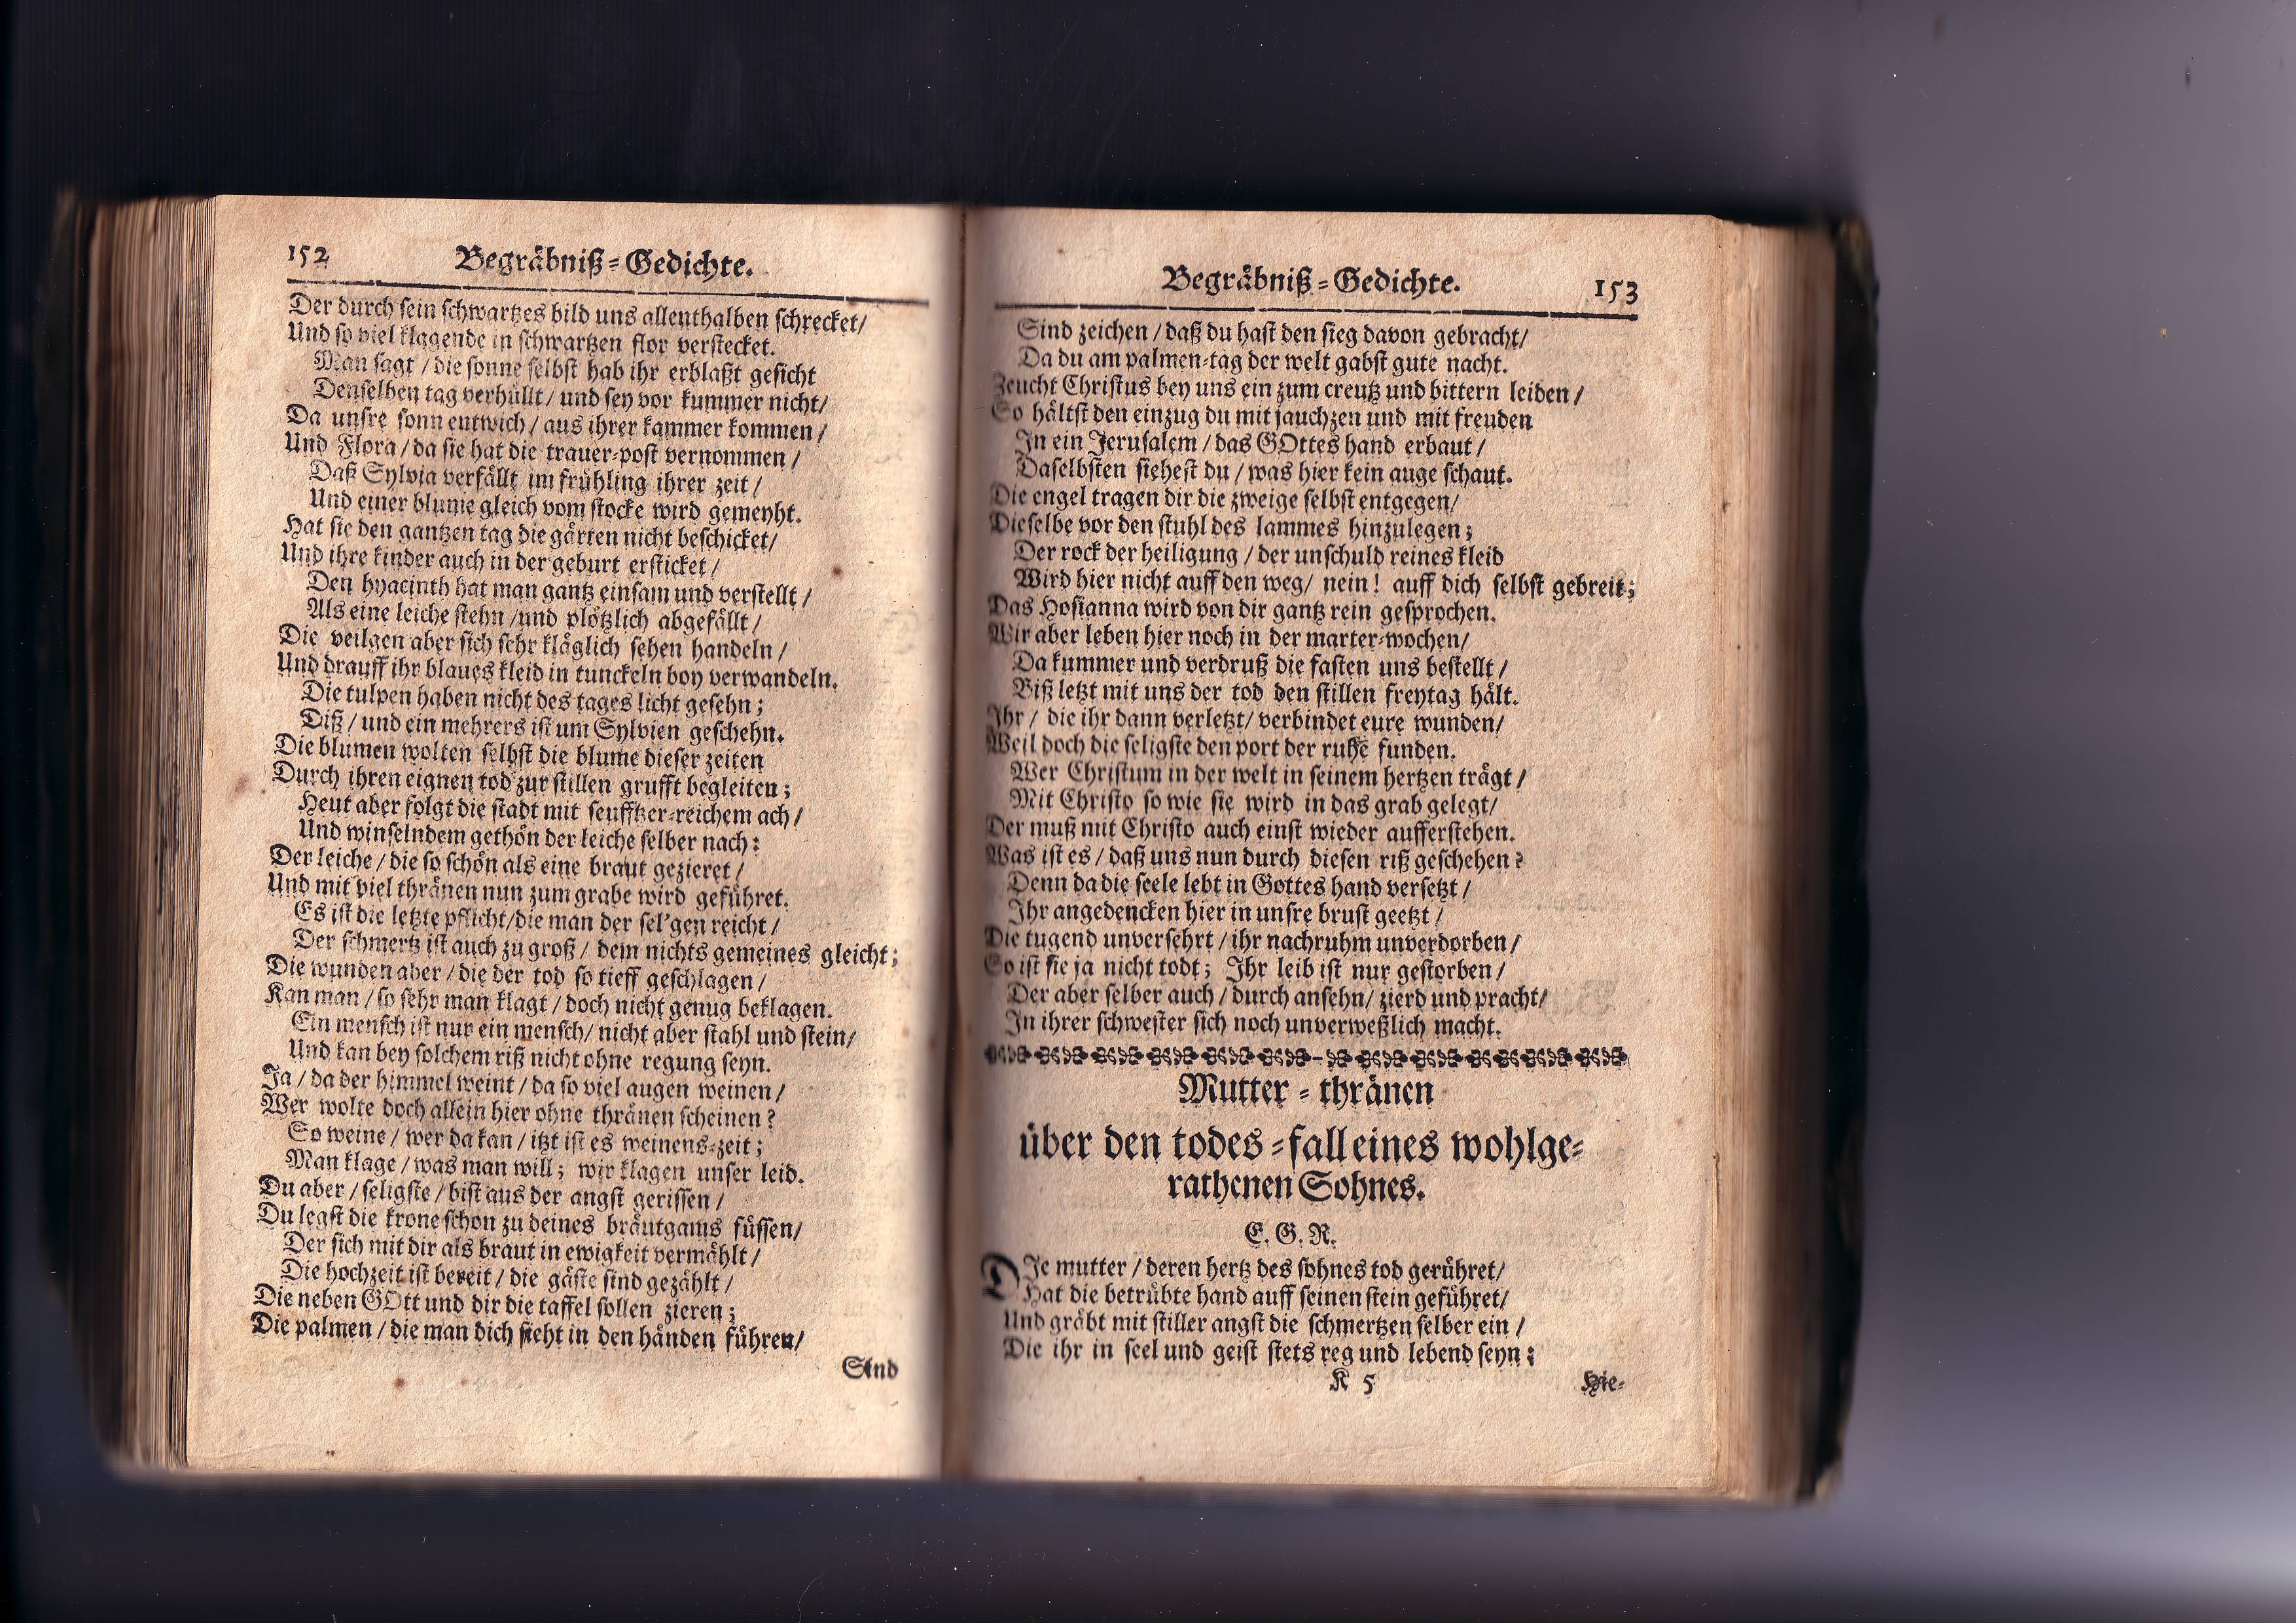 152 Begräbniß-Gedichte.
Der durch sein schwartzes bild uns allenthalben schrecket/
Und so viel klagende in schwartzen flor verstecket.
Man sagt / die sonne selbst hab ihr erblaßt gesicht
Denselben tag verhüllt / und sey vor kummer nicht/
Da unsre sonn entwich / aus ihrer kammer kommen /
Und Flora / da sie hat die trauer-post vernommen /
Daß Sylvia verfällt im frühling ihrer zeit /
Und einer blume gleich vom stocke wird gemeyht.
Hat sie den gantzen tag die gärten nicht beschicket/
Und ihre kinder auch in der geburt ersticket /
Den hyacinth hat man gantz einsam und verstellt /
Als eine leiche stehn /und plötzlich abgefällt /
Die veilgen aber sich sehr kläglich sehen handeln /
Und drauff ihr blaues kleid in tunckeln boy verwandeln.
Die tulpen haben nicht des tages licht gesehn;
Diß / und ein mehrers ist um Sylvien geschehn.
Die blumen wolten selbst die blume dieser zeiten
Durch ihren eignen tod zur stillen grufft begleiten;
Heut aber folgt die stadt mit seufftzer-reichem ach /
Und winselndem gethön der leiche selber nach:
Der leiche / die so schön als eine braut gezieret /
Und mit viel thränen nun zum grabe wird geführet.
Es ist die letzte pflicht/die man der sel'gen reicht /
Der schmertz ist auch zu groß / dem nichts gemeines gleicht;
Die wunden aber / die der tod so tieff geschlagen /
Kan man / so sehr man klagt / doch nicht genug beklagen.
Ein mensch ist nur ein mensch/ nicht aber stahl und stein/
Und kan bey solchem riß nicht ohne regung seyn.
Ja / da der himmel weint / da so viel augen weinen /
Wer wolte doch allein hier ohne thränen scheinen?
So weine / wer da kan / itzt ist es weinens-zeit;
Man klage / was man will; wir klagen unser leid.
Du aber / seligste / bist aus der angst gerissen /
Du legst die krone schon zu deines bräutgams füssen/
Der sich mit dir als braut in ewigkeit vermählt /
Die hochzeit ist bereit / die gäste sind gezählt /
Die neben GOtt und dir die taffel sollen zieren;
Die palmen / die man dich sieht in den händen führen/
Sind
Begräbniß-Gedichte. 153
Sind zeichen / daß du hast den sieg davon gebracht/
Da du am palmen-tag der welt gabst gute nacht.
Zeucht Christus bey uns ein zum creutz und bittern leiden /
So hältst den einzug du mit jauchzen und mit freuden
In ein Jerusalem / das GOttes hand erbaut /
Daselbsten siehest du / was hier kein auge schaut.
Die engel tragen dir die zweige selbst entgegen/
Dieselbe vor den stuhl des lammes hinzulegen;
Der rock der heiligung / der unschuld reines kleid
Wird hier nicht auff den weg/ nein! auff dich selbst gebreit;
Das Hosianna wird von dir gantz rein gesprochen.
Wir aber leben hier noch in der marter-wochen/
Da kummer und verdruß die fasten uns bestellt /
Biß letzt mit uns der tod den stillen freytag hält.
Ihr / die ihr dann verletzt/ verbindet eure wunden/
Weil doch die seligste den port der ruhe funden.
Wer Christum in der welt in seinem hertzen trägt /
Mit Christo so wie sie wird in das grab gelegt/
Der muß mit Christo auch einst wieder aufferstehen.
Was ist es / daß uns nun durch diesen riß geschehen?
Denn da die seele lebt in Gottes hand versetzt /
Ihr angedencken hier in unsre brust geetzt /
Die tugend unversehrt / ihr nachruhm unverdorben /
So ist sie ja nicht todt; Ihr leib ist nur gestorben /
Der aber selber auch / durch ansehn/ zierd und pracht/
In ihrer schwester sich noch unverweßlich macht.
Mutter-thränen
über den todes-fall eines wohlge-
rathenen Sohnes.
E. G. R.
DIe mutter / deren hertz des sohnes tod gerühret/
Hat die betrübte hand auff seinen stein geführet/
Und gräbt mit stiller angst die schmertzen selber ein /
Die ihr in seel und geist stets reg und lebend seyn:
K 5 Hie-